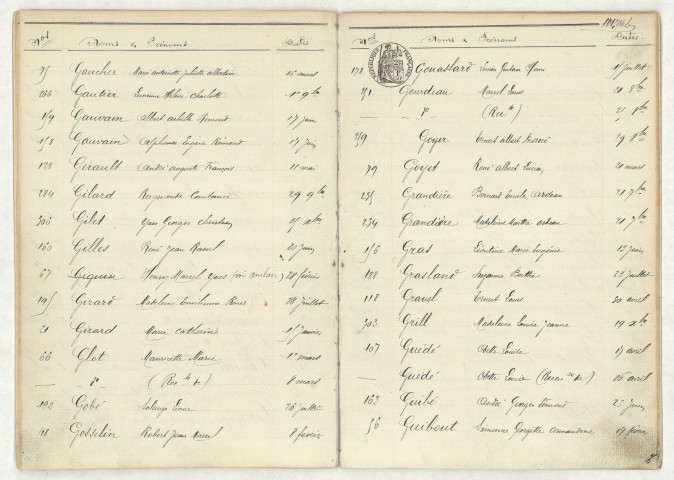 Nos Noms & Prénoms Dates
75 Gaucher Marie antoinette Juliette albertine 15 mars
266 Gautier Hélène Charlotte 1er 9bre
159 Gauvain Albert achille Raimond 17 juin
158 Gauvain Alphonse Eugène Raimond 17 juin
128 Gérault André auguste François 11 mai
284 Gilard Raymonde Constance 29 9bre
306 Gilet Yves Georges Christian
160 Gilles René Jean Raoul 20 juin
67 Henry Marcel Yves 28 février
195 Girard Madeleine Emilienne 28 juillet
21 Girard Marie Catherine 15 janvier
66 Glot Mauricette Marie 1er mars
— do (Recce de) 8 mars
192 Gobé Solange 26 juillet
48 Gosselin Robert Jean Marcel 8 février
Nos Noms & Prénoms Dates
RÉPUBLIQUE FRANÇAISE
178 Gouastard Gustave 15 juillet
251 Gourdeau Marcel Louis 21 8bre
— do (Recce) 21 8bre
259 Goyer Ernest albert 29 8bre
79 Goyet René Albert Lucien 21 mars
235 Grandière Bernard Emile 21 7bre
234 Grandière Madeleine Marthe 21 7bre
156 Gras Léontine Marie Eugénie 15 juin
188 Grasland Suzanne Berthe 22 juillet
118 Gravel Ernest Louis 30 avril
303 Grill Madeleine Louise Jeanne 19 xbre
107 Guédé Odette Louise 17 avril
— Guédé Odette Louise 26 avril
163 Guibé André Georges Edmond 25 juin
56 Guibout Simonne Georgette Armandine 17 février